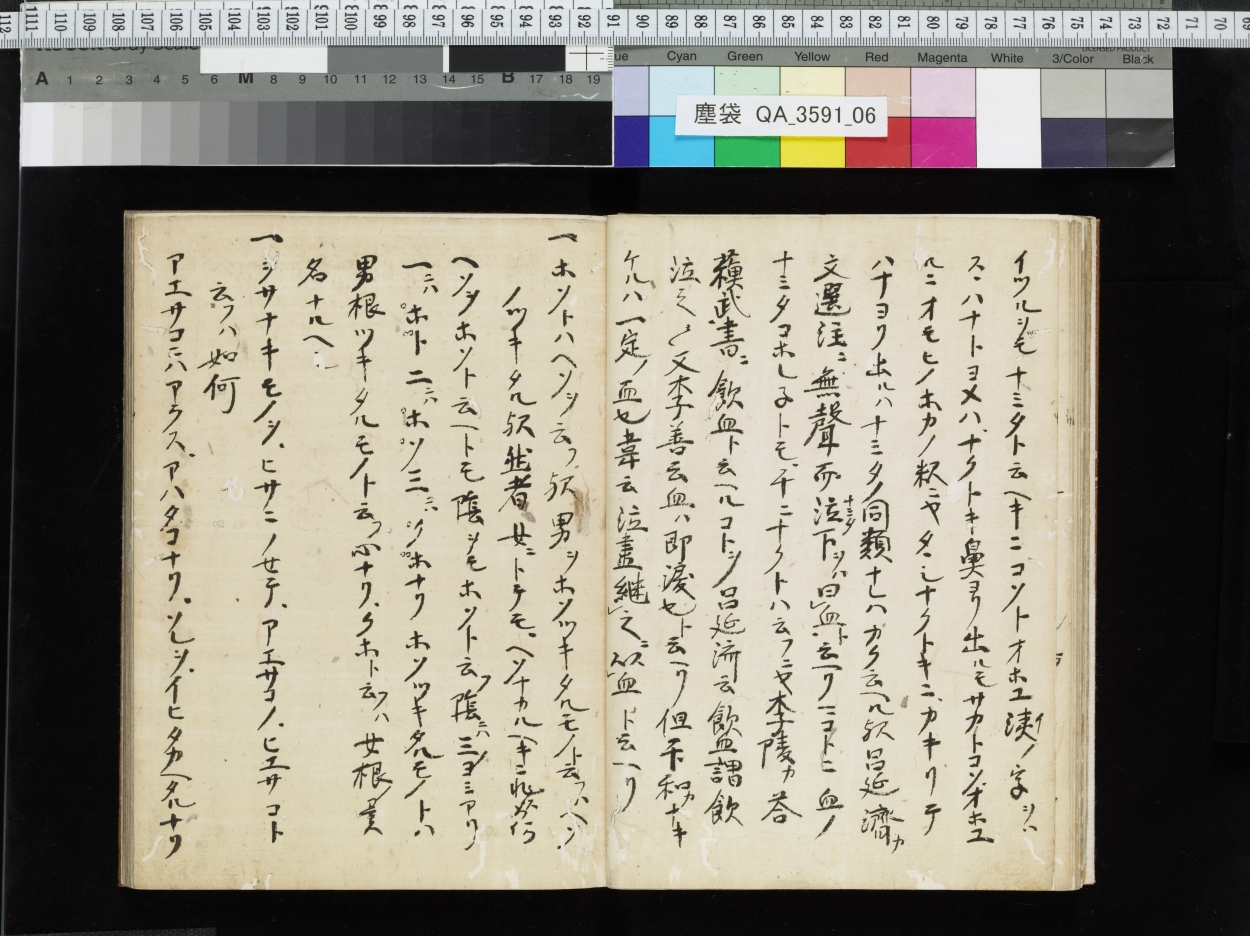 塵袋 QA_3591_06
Cyan Green Yellow Red Magenta White 3/Color Black
A 1 2 3 4 5 6 M 8 9 10 11 12 13 14 15 B 17 18 19
イツルヲモナミタト云ヘキニコソトオホユ洟ノ字ヲハ
スヽハナトヨメハナクトキ鼻ヨリ出ルモサカトコソオホユ
ルニオモヒノホカノ釈ニヤタヽシナクトキニカキリテ
ハナヨリ出ルハナミタノ同類ナレハカク云ヘル歟呂延濟カ
文選注ニ無聲而泣下ヲハ曰血ト云ヘリマコトニ血ノ
ナミタコホレ子トモチニナクトハ云フニヤ李陵カ答
蘇武書ニ飲血ト云ヘルコトヲ呂延濟云飲血謂飲
泣也又李善云血ハ即涙也ト云ヘリ但卞和カナキ
ケルハ一定ノ血也韋云泣盡継之以血ト云ヘリ
一ホソトハヘソヲ云フ歟男ヲホソツキタルモノト云フハヘソ
ノツキタル歟然者女ニトテモヘソナカルヘキニ非ス如何
ヘソヲホソト云ヘトモ陰ヲモホソト云フ陰ニハ三ノヨミアリ
一ニハホト二ニハホソ三ニハツホナリホソツキタルモノトハ
男根ツキタルモノト云フ心ナリクホト云フハ女根ノ異
名ナルヘシ
一ヲサナキモノヲヒサニノセテアエサコノヒエサコト
云フハ如何
アエサコニハアラスアハタコナリソレヲイヒタカヘタルナリ